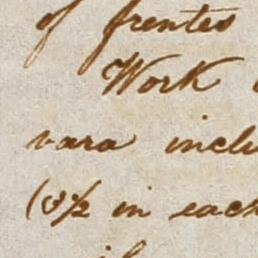 of frentes
Work
vara inclu
in each